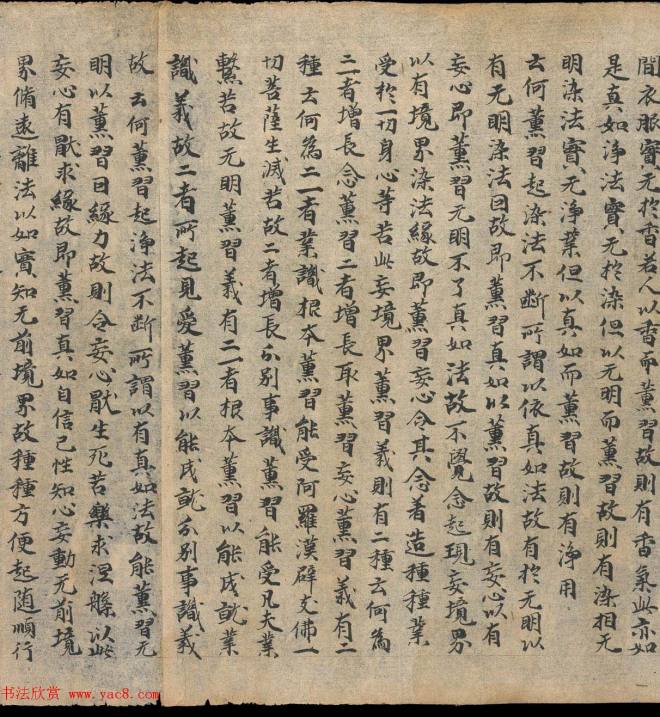 間衣服實无於香若人以香而薰習故則有香氣此亦如
是真如淨法實无於染但以无明而薰習故則有染相无
明染法實无淨業但以真如而薰習故則有淨用
云何薰習起染法不斷所謂以依真如法故有於无明以
有无明染法因故即薰習真如以薰習故則有妄心以有
妄心即薰習无明不了真如法故不覺念起現妄境界
以有境界染法緣故即薰習妄心令其念著造種種業
受於一切身心等苦此妄境界薰習義則有二種云何為
二一者增長念薰習二者增長取薰習妄心薰習義有二
種云何為二一者業識根本薰習能受阿羅漢辟支佛一
切菩薩生滅苦故二者增長分別事識薰習能受凡夫業
繫苦故无明薰習義有二一者根本薰習以能成就業
識義故二者所起見愛薰習以能成就分別事識義
故云何薰習起淨法不斷所謂以有真如法故能薰習无
明以薰習因緣力故則令妄心厭生死苦樂求涅槃以此
妄心有厭求緣故即薰習真如自信己性知心妄動无前境
界脩遠離法以如實知无前境界故種種方便起隨順行
书法欣赏 www.yac8.com